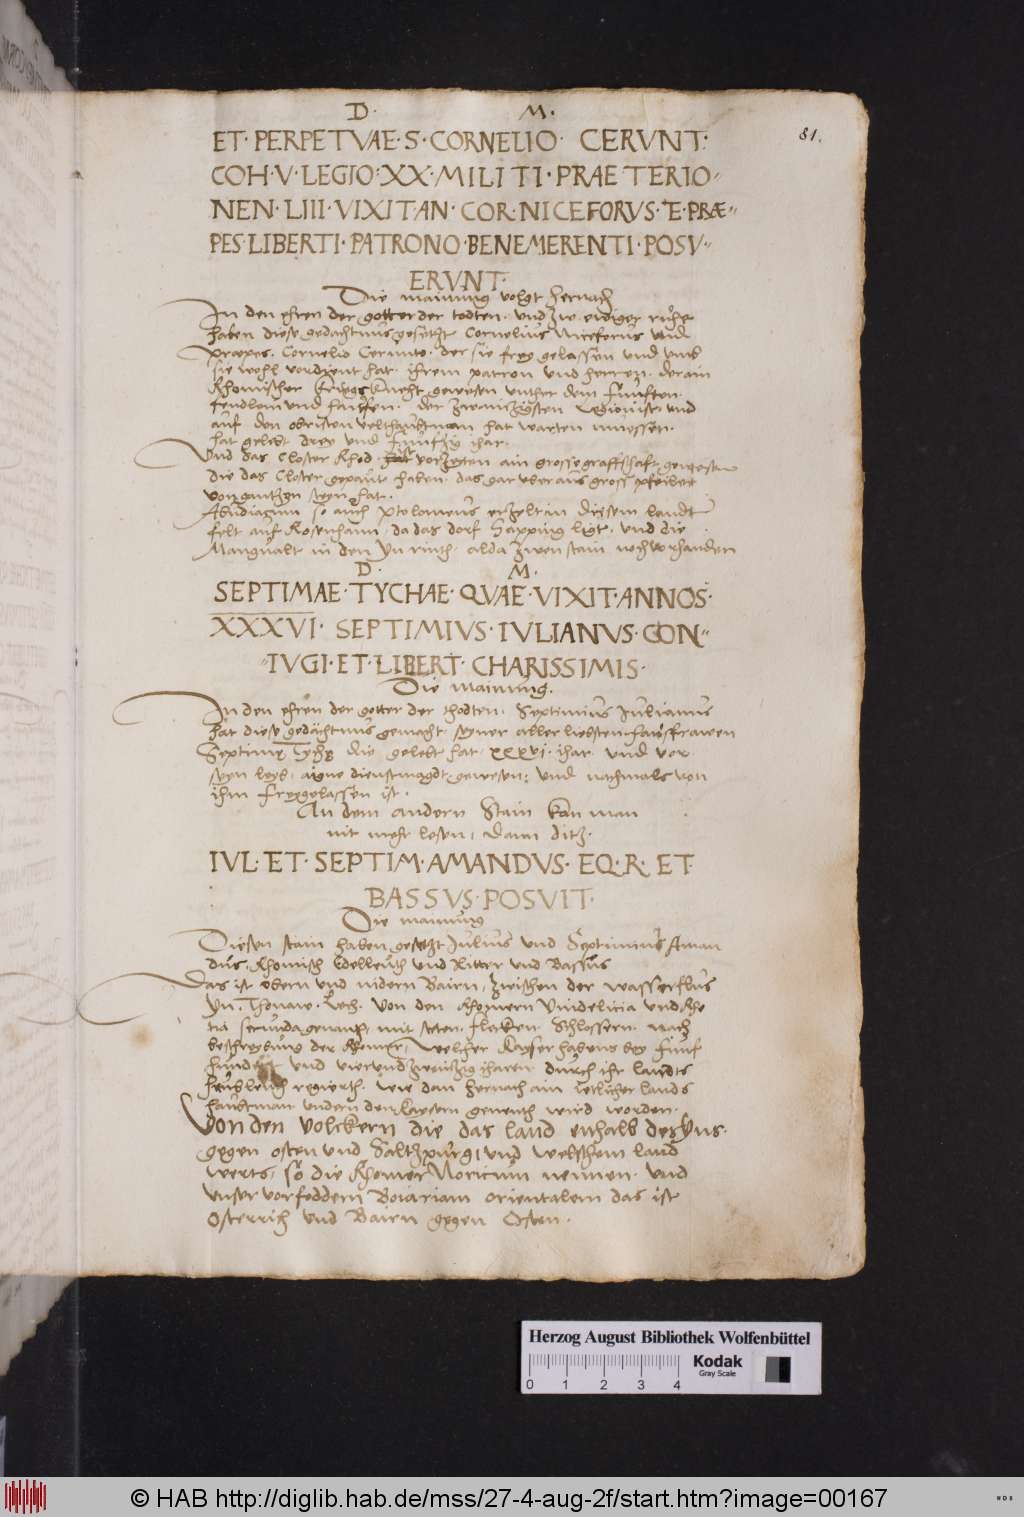 81.
D. M.
ET·PERPETVAE·S·CORNELIO· CERVNT·
COH·V·LEGIO·XX·MILITI·PRAETERIO
NEN·LIII·VIXIT·AN·COR·NICEFORVS·E·PRÆ
PES·LIBERTI·PATRONO·BENEMERENTI·POSV
ERVNT·
Die mainung volgt hernach
In den ehren der gotter der todten. und zw ewiger rühe
haben dise gedachtnus gesetzt Cornelius Niceforus und
Præpes. Cornelio Cerunto. der sie frey gelassen und umb
sie wohl verdient hat. ihrem patron und herren. der ain
Rhomischer kriegsknecht gewesen unther dem fünften
fendlem und hauffen. der zwainzigsten Legionist und
auf den obristen velthauptman hat warten muessen.
hat gelebt drey und fünfzig ihar.
Und das Closter Rhod vorzeyten ain grosse graffschaft gewesen
die das Closter gepaut haben. das gar uberaus gross
von gantzen steyn hat.
so auch Ptolameus erzelt in diesem landt
felt auf Rosenhaim, da das dorf ligt. und die
Mangualt in den Yn rinth. alda zwen stain noch vorhanden
D. M.
SEPTIMAE·TYCHAE·QVAE·VIXIT·ANNOS·
XXXVI· SEPTIMIVS·IVLIANVS·CON
IVGI·ET·LIBERT·CHARISSIMIS·
Die mainung.
In den ehren der gotter der thodten. Septimius Iulianus
hat diese gedächtnus gemacht. seyner aller liebsten hausfrawen
Septimę Tychę die gelebt hat xxxvi. ihar und vor
seyn leyb. aigne dienstmagdt gewesen: und nachmals von
ihm freygelassen ist.
An dem andern Stain kan man
nit mehr lesen, dann ditz.
IVL·ET·SEPTIM·AMANDVS·EQ·R·ET
BASSVS·POSVIT·
Die mainung
Diesen stain haben gesetzt Iulius und Septimius Aman
dus, Rhomisch Edelleuth und Ritter und Bassus
Das ist obern und nidern Bairn, zwischen der wasserflus
Yn, Thonaw, Lech. von den Rhomern Vindelicia und Rhe
tia secunda genant, mit steten. flecken. Schlossern. nach
beschreybung der Rhomer, welcher kayser habens bey fünf
hundert und vierundzwainzig iharen durch ihr landts
regierth. wie dan hernach ain ietlicher lands
hauptman undern den kaysern genenth wird worden.
Von den Volckern die das land enhalb des Yns.
gegen osten und Saltzpurg, und welschem land
werts, so die Rhomer Noricum nennen. und
unser vorfoddern Boiariam orientalem das ist
Osterrich und Bairn gegen Osten.
Herzog August Bibliothek Wolfenbüttel
0 1 2 3 4
Kodak
Gray Scale
© HAB http://diglib.hab.de/mss/27-4-aug-2f/start.htm?image=00167